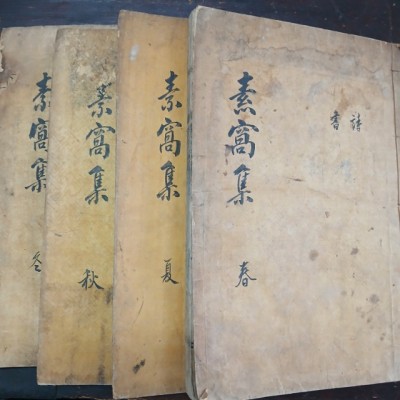 詩
書
素窩集
春
素窩集
夏
素窩集
秋
素窩集
冬